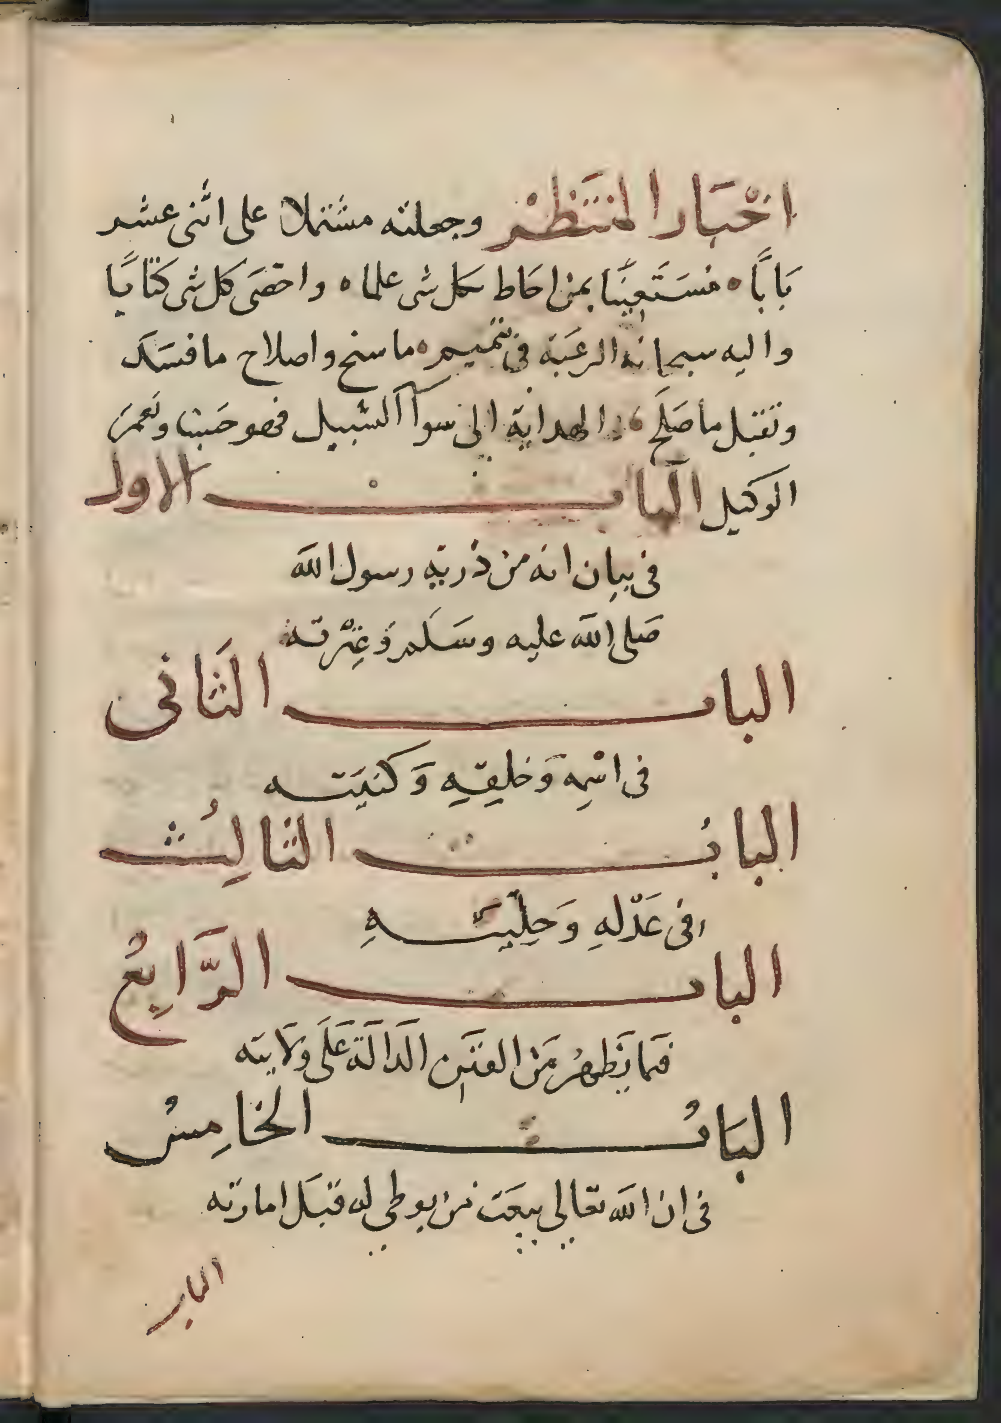 اخبار المنتظر وجعلته مشتملا على اثنى عشر
بابًا ه مستعينًا بمن احاط بكل شى علما ه واحصى كل شى كتابًا
واليه سبحانه الرغبة فى تتميم ه ما سنح واصلاح ما فسد
وتقبل ما صلح والهداية الى سوآ السبيل فهو حسبنا ونعم
الوكيل الباب الاول
فى بيان انه من ذرية رسول الله
صلى الله عليه وسلم وعترته
الباب الثانى
فى اسمِه وَخلِقِهِ وَكنيَته
البابُ الثالِثُ
فى عَدْلِهِ وَحِليَتهِ
الباب الرَّابِعُ
فيما يَظهرُ مَن الفتَن الدالَة عَلَى ولَايته
البَابُ الخامِسُ
فى ان الله تعالى يبعَث مَن يوطي له قبَل امارته
الباب